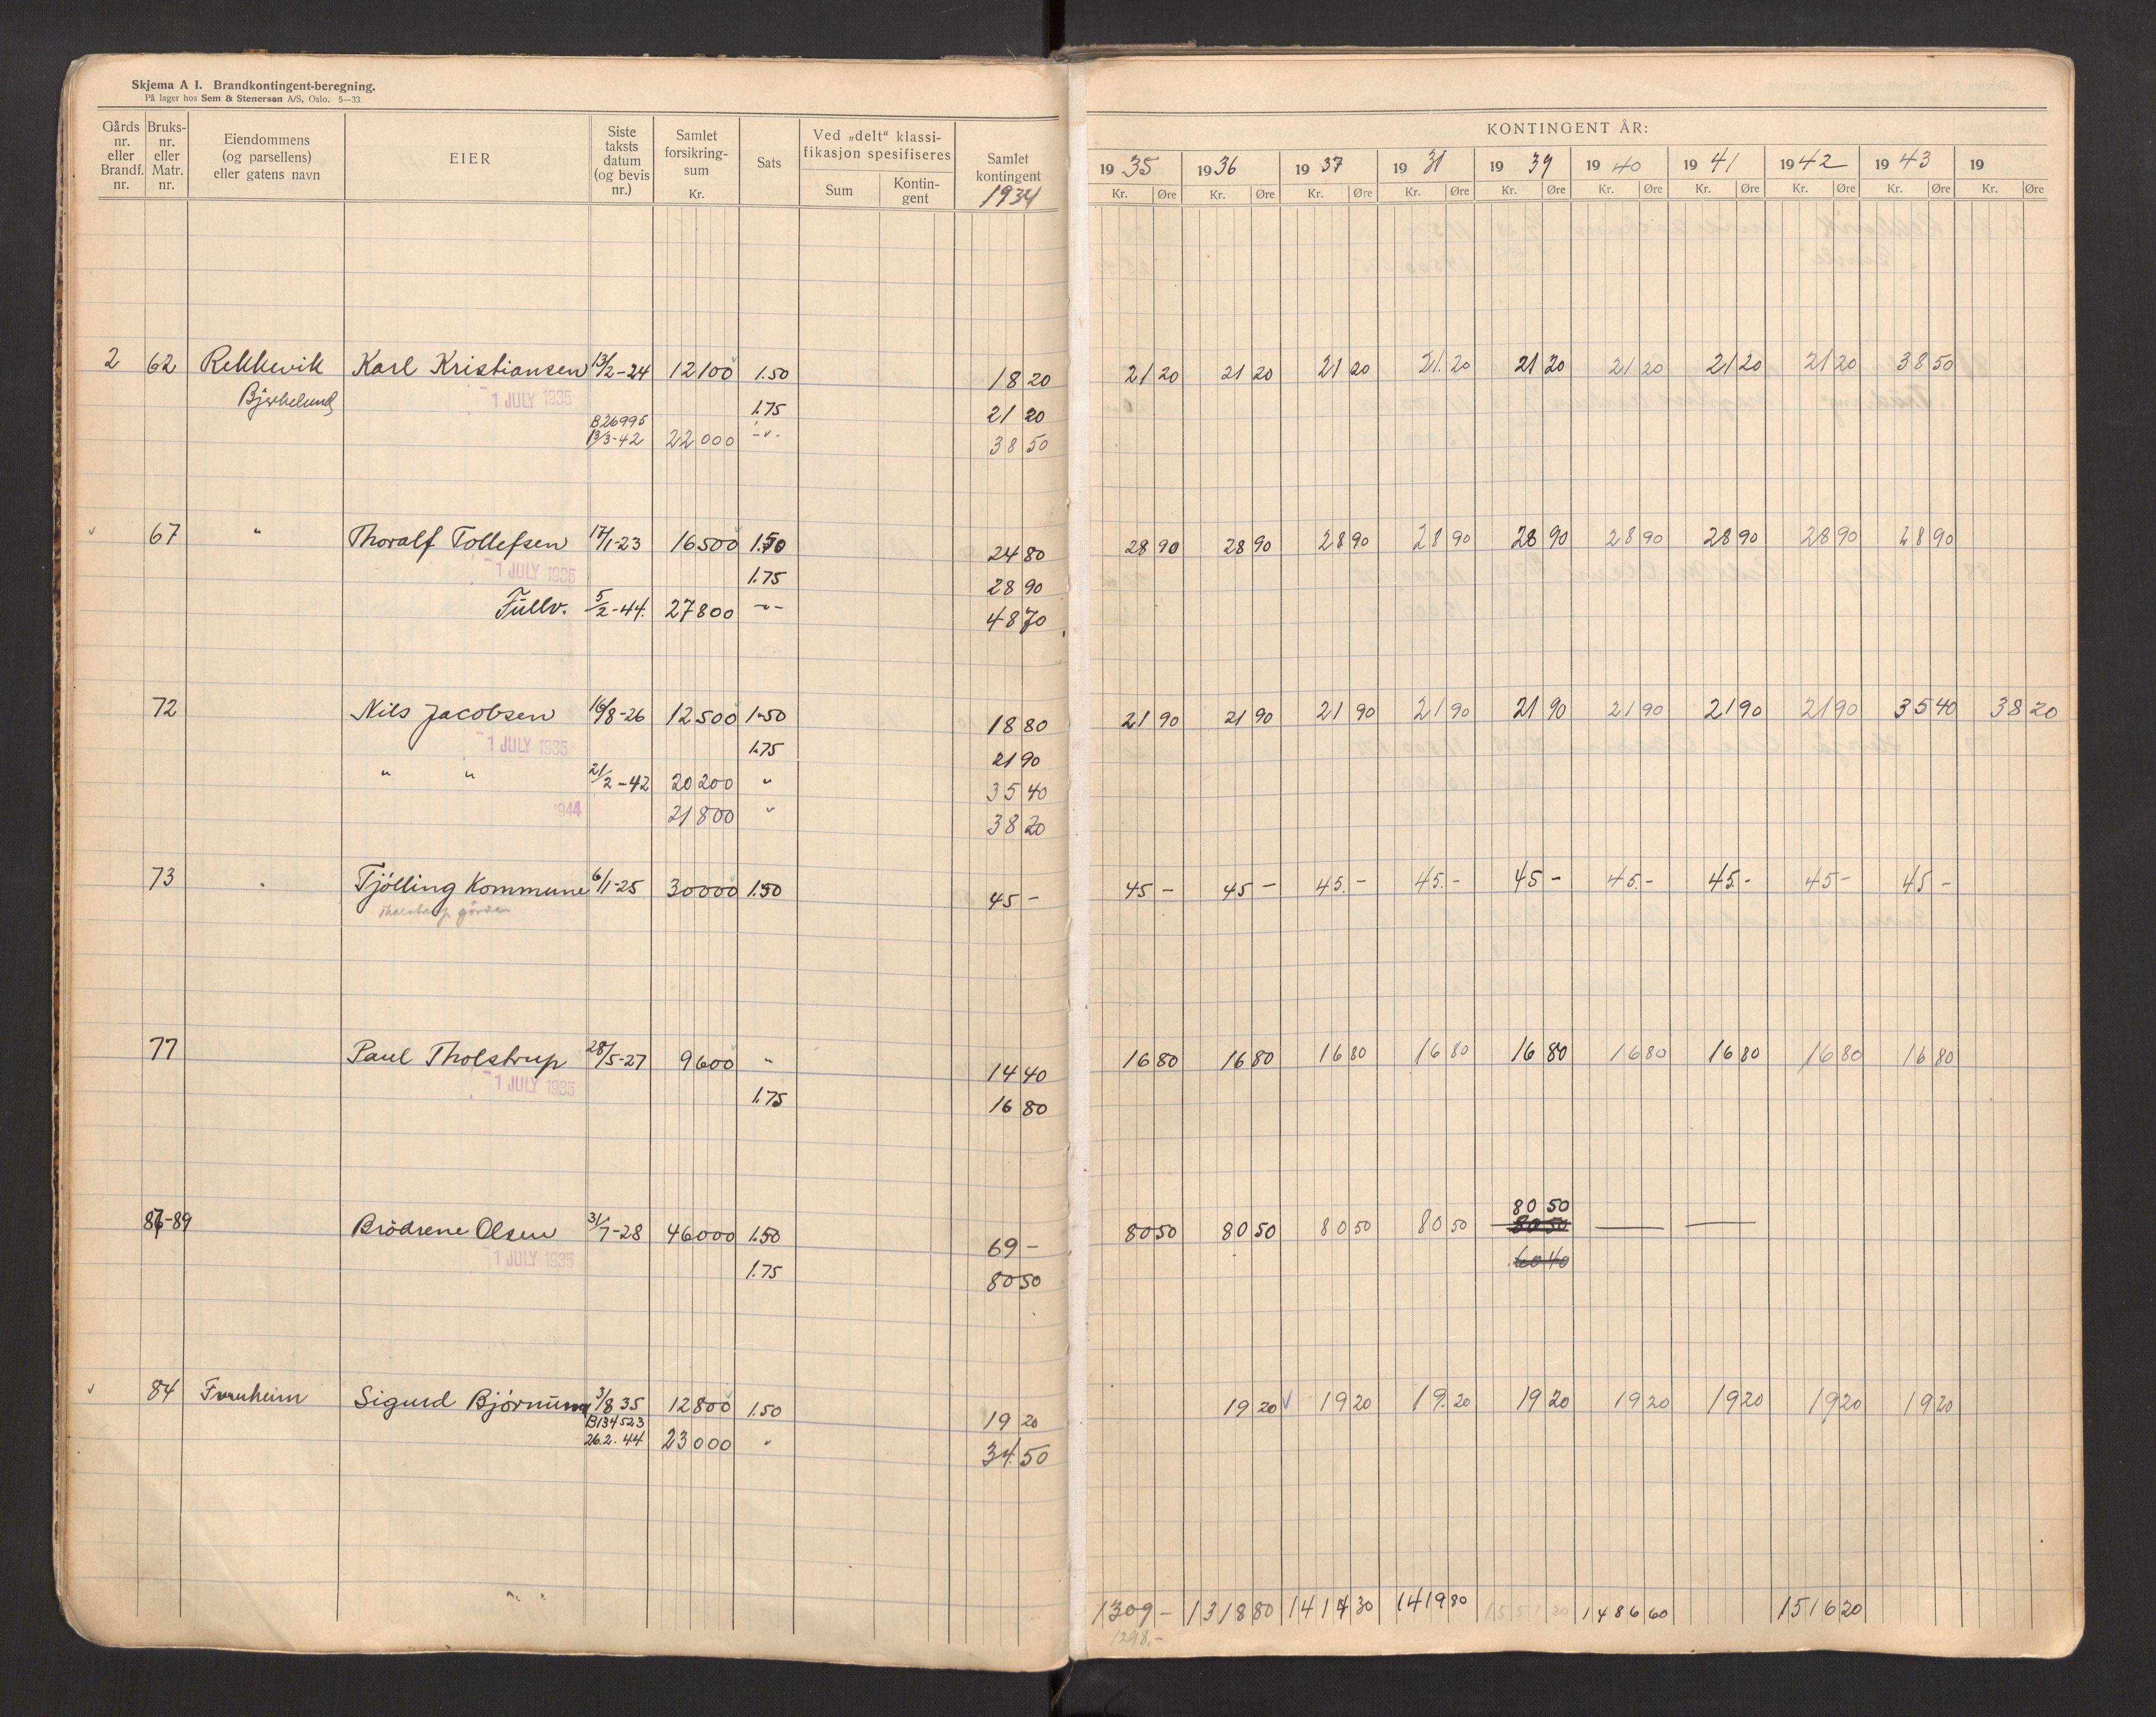 Skjema A I. Brandkontingent-beregning.
På lager hos Sem & Stenersen A/S, Oslo. 5—33.
Gårds nr. eller Brandf. nr.
Bruks- nr. eller Matr. nr.
Eiendommens (og parsellens) eller gatens navn
EIER
Siste taksts datum (og bevis nr.)
Samlet forsikring- sum Kr.
Sats
Ved „delt“ klassi- fikasjon spesifiseres
Sum
Kontin- gent
Samlet kontingent 1934
KONTINGENT ÅR:
1935 1936 1937 1938 1939 1940 1941 1942 1943 19
Kr. Øre Kr. Øre Kr. Øre Kr. Øre Kr. Øre Kr. Øre Kr. Øre Kr. Øre Kr. Øre Kr. Øre
2 62 Rekkevik Karl Kristiansen 13/2-24 12100 1.50 18 20 21 20 21 20 21 20 21.20 21 20 21 20 21 20 21 20 38 50
Bjerkelund 1 JULY 1935 1.75 21 20
B26995
13/3-42 22000 -"- 38 50
67 " Thoralf Tollefsen 17/1-23 16500 1.50 24 80 28 90 28 90 28 90 28 90 28 90 28 90 28 90 28 90 28 90
1 JULY 1935 1.75 28 90
Fullv. 5/2-44. 27800 -"- 48 70
72 Nils Jacobsen 16/8-26 12500 1.50 18 80 21 90 21 90 21 90 21 90 21 90 21 90 21 90 21 90 35 40 38 20
1 JULY 1935 1.75 21 90
" " 21/2-42 20200 " 35 40
1944 21800 " 38 20
73 Tjölling Kommune 6/1-25 30000 1.50 45 - 45 - 45 - 45.- 45.- 45 - 45.- 45.- 45 - 45 -
gården
77 Paul Tholstrup 28/5-27 9600 " 14 40 16 80 16 80 16 80 16 80 16 80 16 80 16 80 16 80 16 80
1 JULY 1935 1.75 16 80
80 50
87-89 Brödrene Olsen 31/7-28 46000 1.50 69 - 80 50 80 50 80 50 80 50 80 50 — —
1 JULY 1935 1.75 80 50 60 40
84 Furuheim Sigurd Björnum 3/8 35 12800 1.50 19 20 19 20 19 20 19.20 19 20 19 20 19 20 19 20 19 20
B134523
26.2.44 23000 " 34.50
1309 - 1318 80 1417 30 1419 80 1551 20 1486 60 1516 20
1298.-